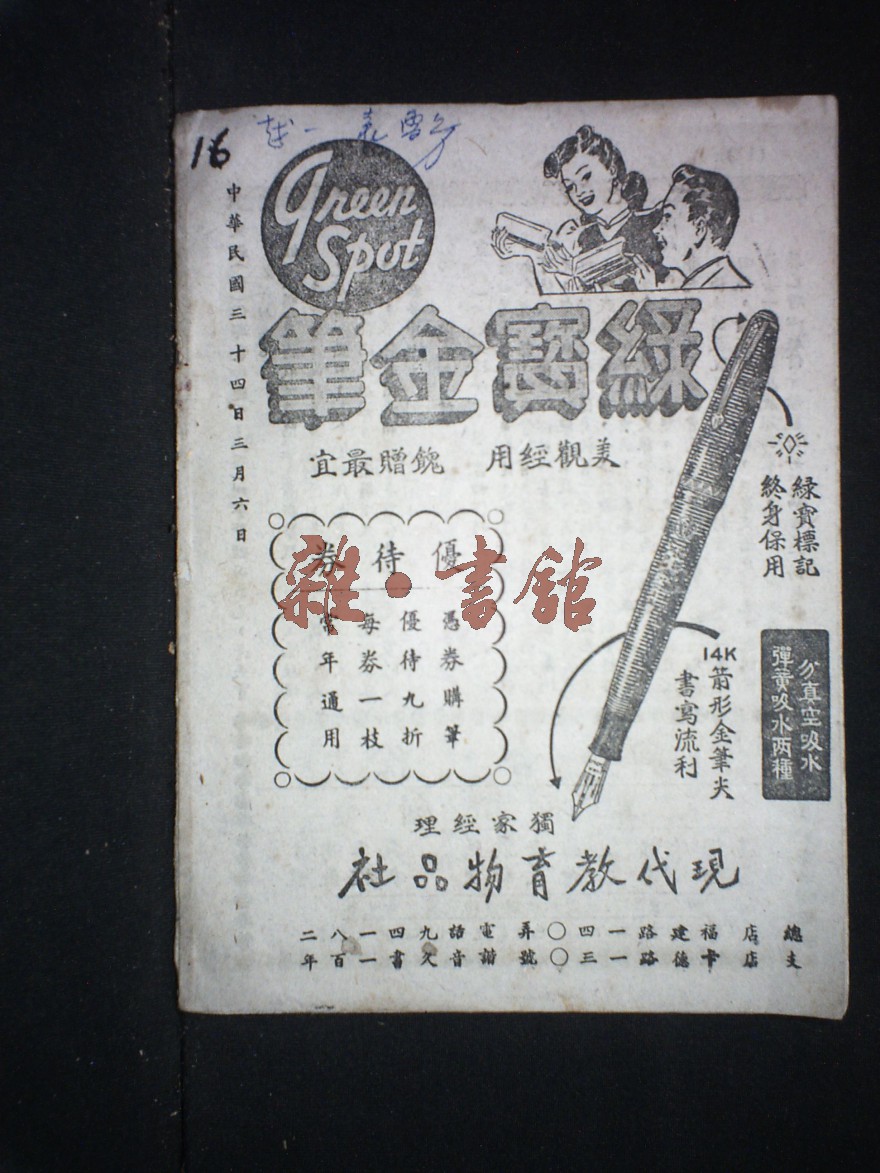 16
Green
Spot
中華民國三十四日三月六日
綠寶金筆
美觀經用 餽贈最宜
綠寶標記
終身保用
優待券
憑券購筆
優待九折
每券一枝
常年通用
雜·書館
14K
箭形金筆尖
書寫流利
分真空吸水
彈簧吸水两種
獨家經理
現代教育物品社
總店 福建路一四〇弄 電話九四一八二
支店 卡德路一三〇號